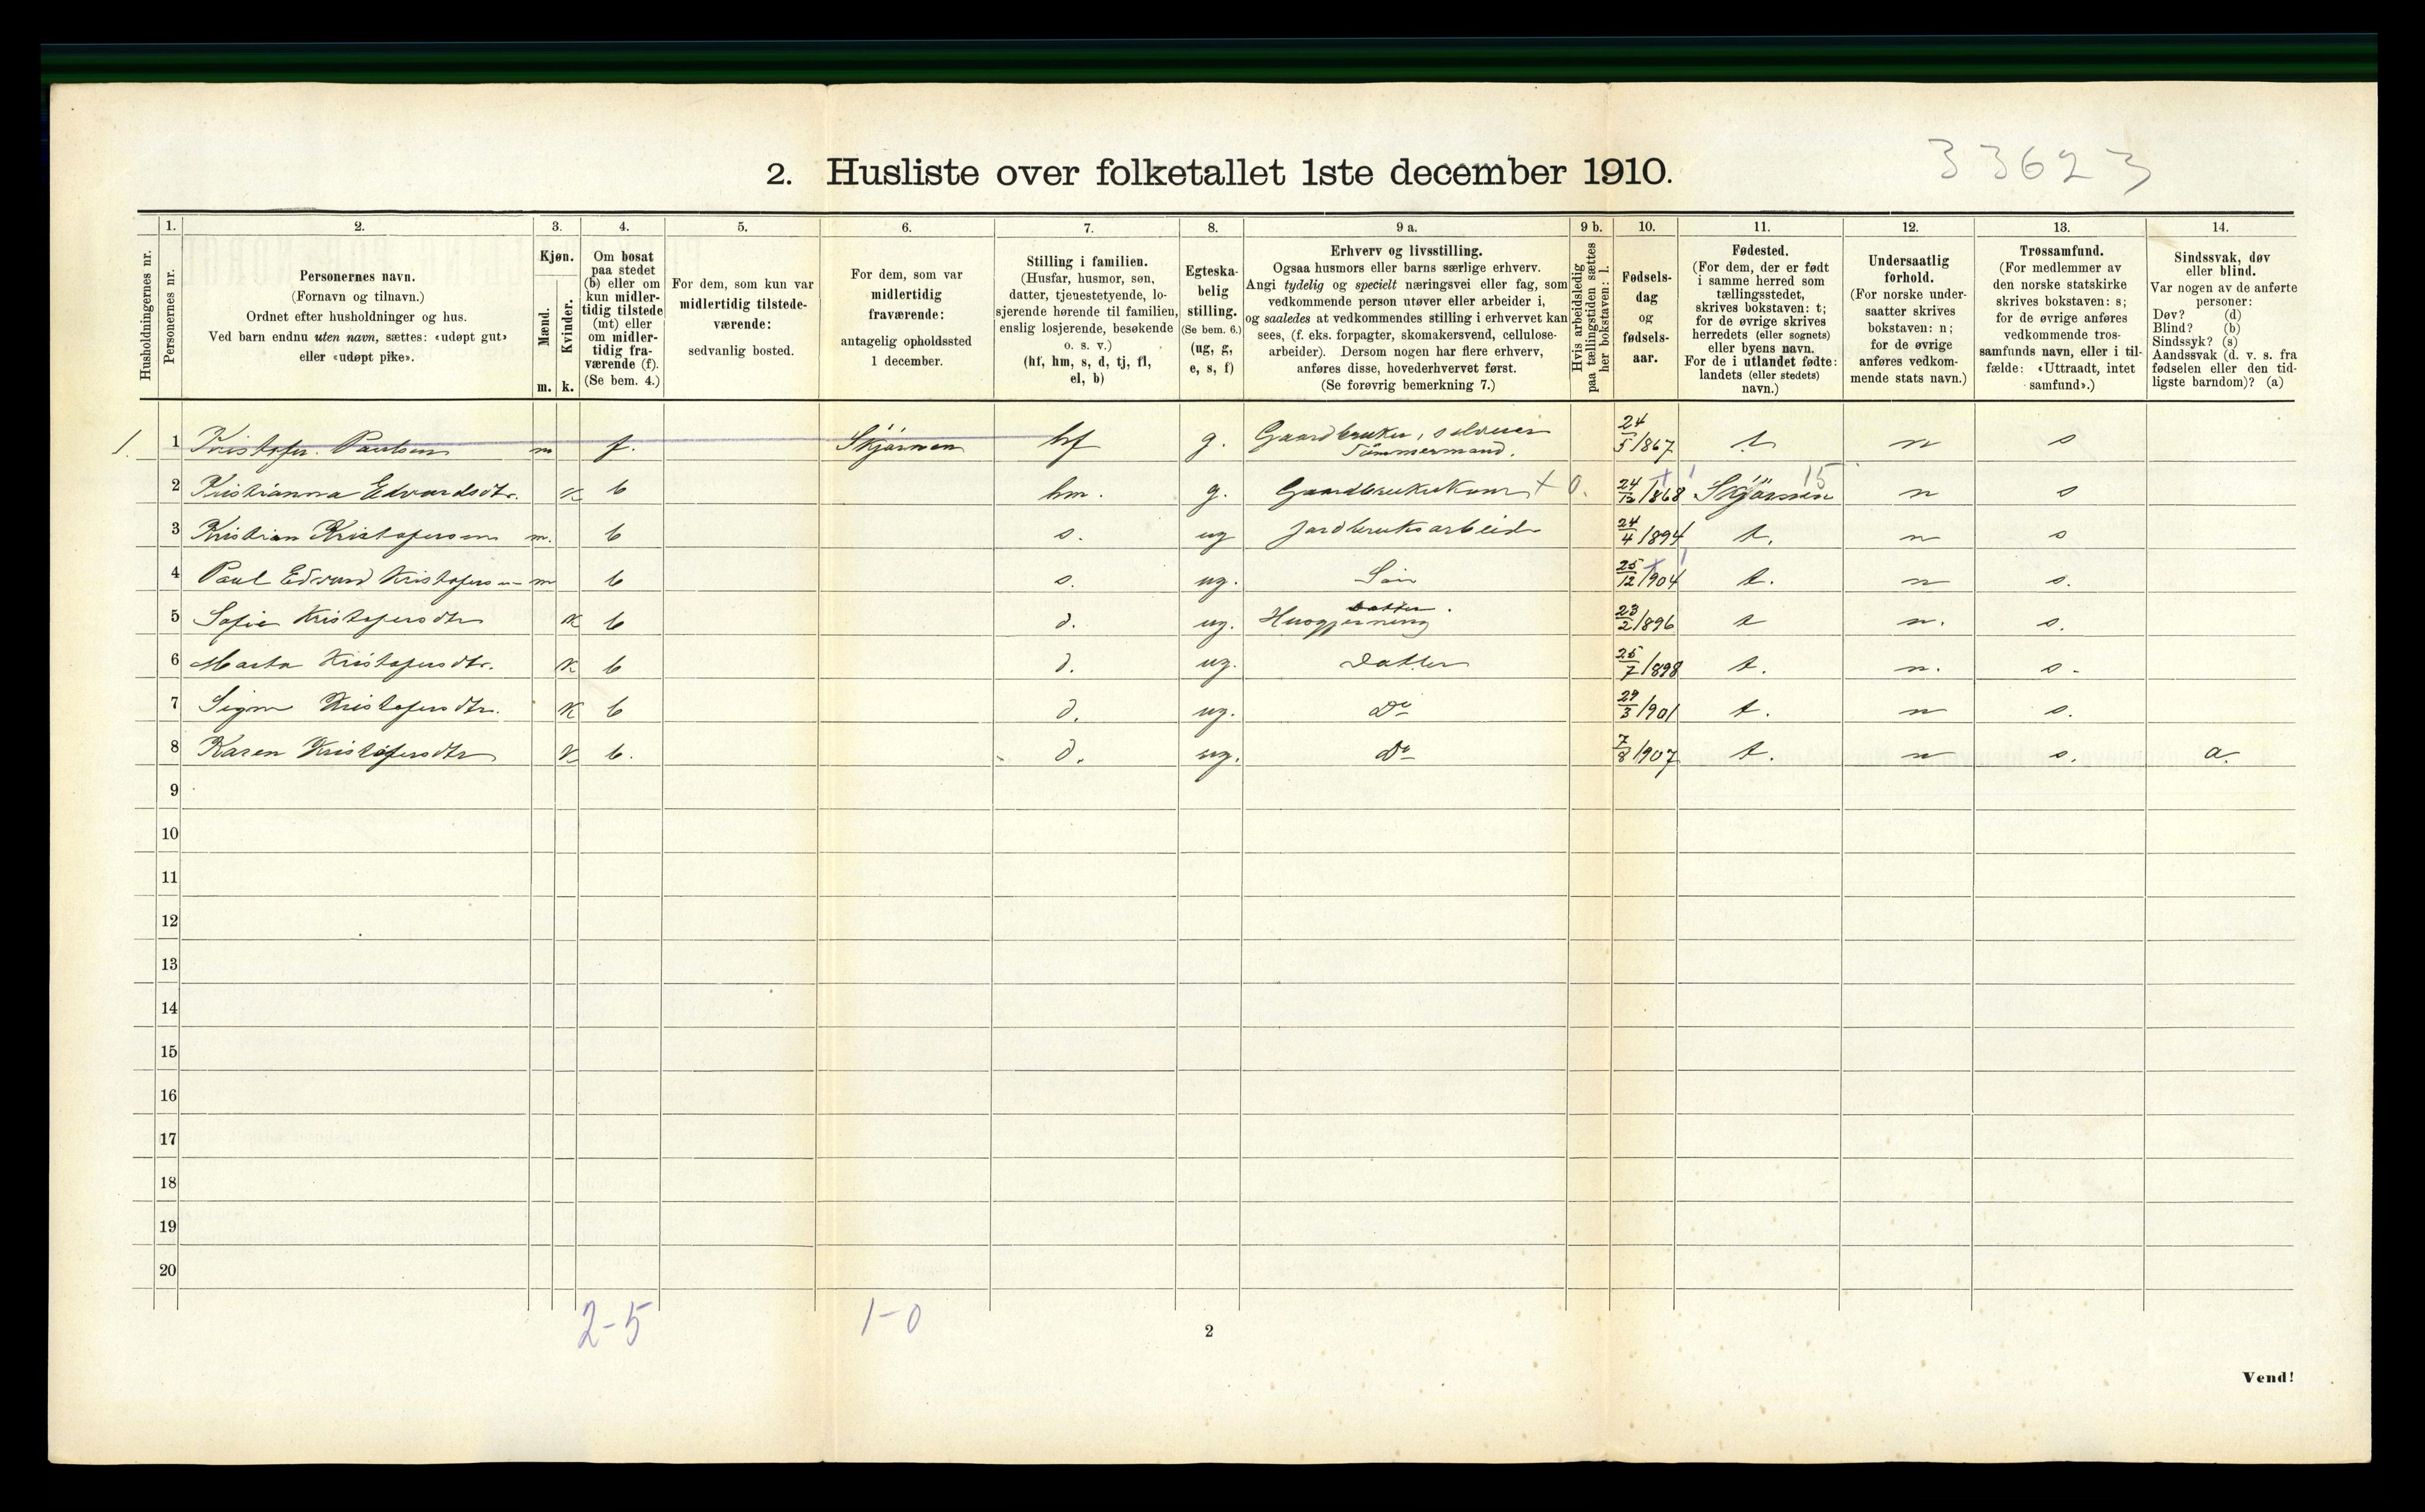 33623
2. Husliste over folketallet 1ste december 1910.
Husholdningernes nr.
1.
Personernes nr.
2.
Personernes navn.
(Fornavn og tilnavn.)
Ordnet efter husholdninger og hus.
Ved barn endnu uten navn, sættes: «udøpt gut»
eller «udøpt pike».
3.
Kjøn.
Mænd.
Kvinder.
m. k.
4.
Om bosat
paa stedet
(b) eller om
kun midler-
tidig tilstede
(mt) eller
om midler-
tidig fra-
værende (f).
(Se bem. 4.)
5.
For dem, som kun var
midlertidig tilstede-
værende:
sedvanlig bosted.
6.
For dem, som var
midlertidig
fraværende:
antagelig opholdssted
1 december.
7.
Stilling i familien.
(Husfar, husmor, søn,
datter, tjenestetyende, lo-
sjerende hørende til familien,
enslig losjerende, besøkende
o. s. v.)
(hf, hm, s, d, tj, fl,
el, b)
8.
Egteska-
belig
stilling.
(Se bem. 6.)
(ug, g,
e, s, f)
9 a.
Erhverv og livsstilling.
Ogsaa husmors eller barns særlige erhverv.
Angi tydelig og specielt næringsvei eller fag, som
vedkommende person utøver eller arbeider i,
og saaledes at vedkommendes stilling i erhvervet kan
sees, (f. eks. forpagter, skomakersvend, cellulose-
arbeider). Dersom nogen har flere erhverv,
anføres disse, hovederhvervet først.
(Se forøvrig bemerkning 7.)
9 b.
Hvis arbeidsledig
paa tællingstiden sættes
her bokstaven: l.
10.
Fødsels-
dag
og
fødsels-
aar.
11.
Fødested.
(For dem, der er født
i samme herred som
tællingsstedet,
skrives bokstaven: t;
for de øvrige skrives
herredets (eller sognets)
eller byens navn.
For de i utlandet fødte:
landets (eller stedets)
navn.)
12.
Undersaatlig
forhold.
(For norske under-
saatter skrives
bokstaven: n;
for de øvrige
anføres vedkom-
mende stats navn.)
13.
Trossamfund.
(For medlemmer av
den norske statskirke
skrives bokstaven: s;
for de øvrige anføres
vedkommende tros-
samfunds navn, eller i til-
fælde: «Uttraadt, intet
samfund».)
14.
Sindssvak, døv
eller blind.
Var nogen av de anførte
personer:
Døv? (d)
Blind? (b)
Sindssyk? (s)
Aandssvak (d. v. s. fra
fødselen eller den tid-
ligste barndom)? (a)
1. 1 Kristofer. Paulsen m f. Skjörnen hf g. Gaardbruker, selveier Tömmermand. 24/5/867 t. n s
2 Kristianna Edvardsdtr. k b hm. g. Gaardbrukerkone + 0. 24/12/868 Skjörnen 15 n s
3 Kristian Kristofersen m. b s. ug Jordbruksarbeide 24/4/894 t. n s
4 Paul Edvard Kristofersen m b s. ug. Sön 25/12/904 t. n s.
5 Sofie Kristofersdtr k b d. ug. Datter. Husgjerning 23/2/896 t n. s.
6 Marta Kristofersdtr. k b d. ug. Datter 25/7/898 t. n. s.
7 Signe Kristofersdtr. k b d. ug. Do 29/3/901 t. n s.
8 Karen Kristofersdtr k b. d. ug. Do 7/8/907 t. n s. a.
9
10
11
12
13
14
15
16
17
18
19
20
2-5 1-0
2
Vend!